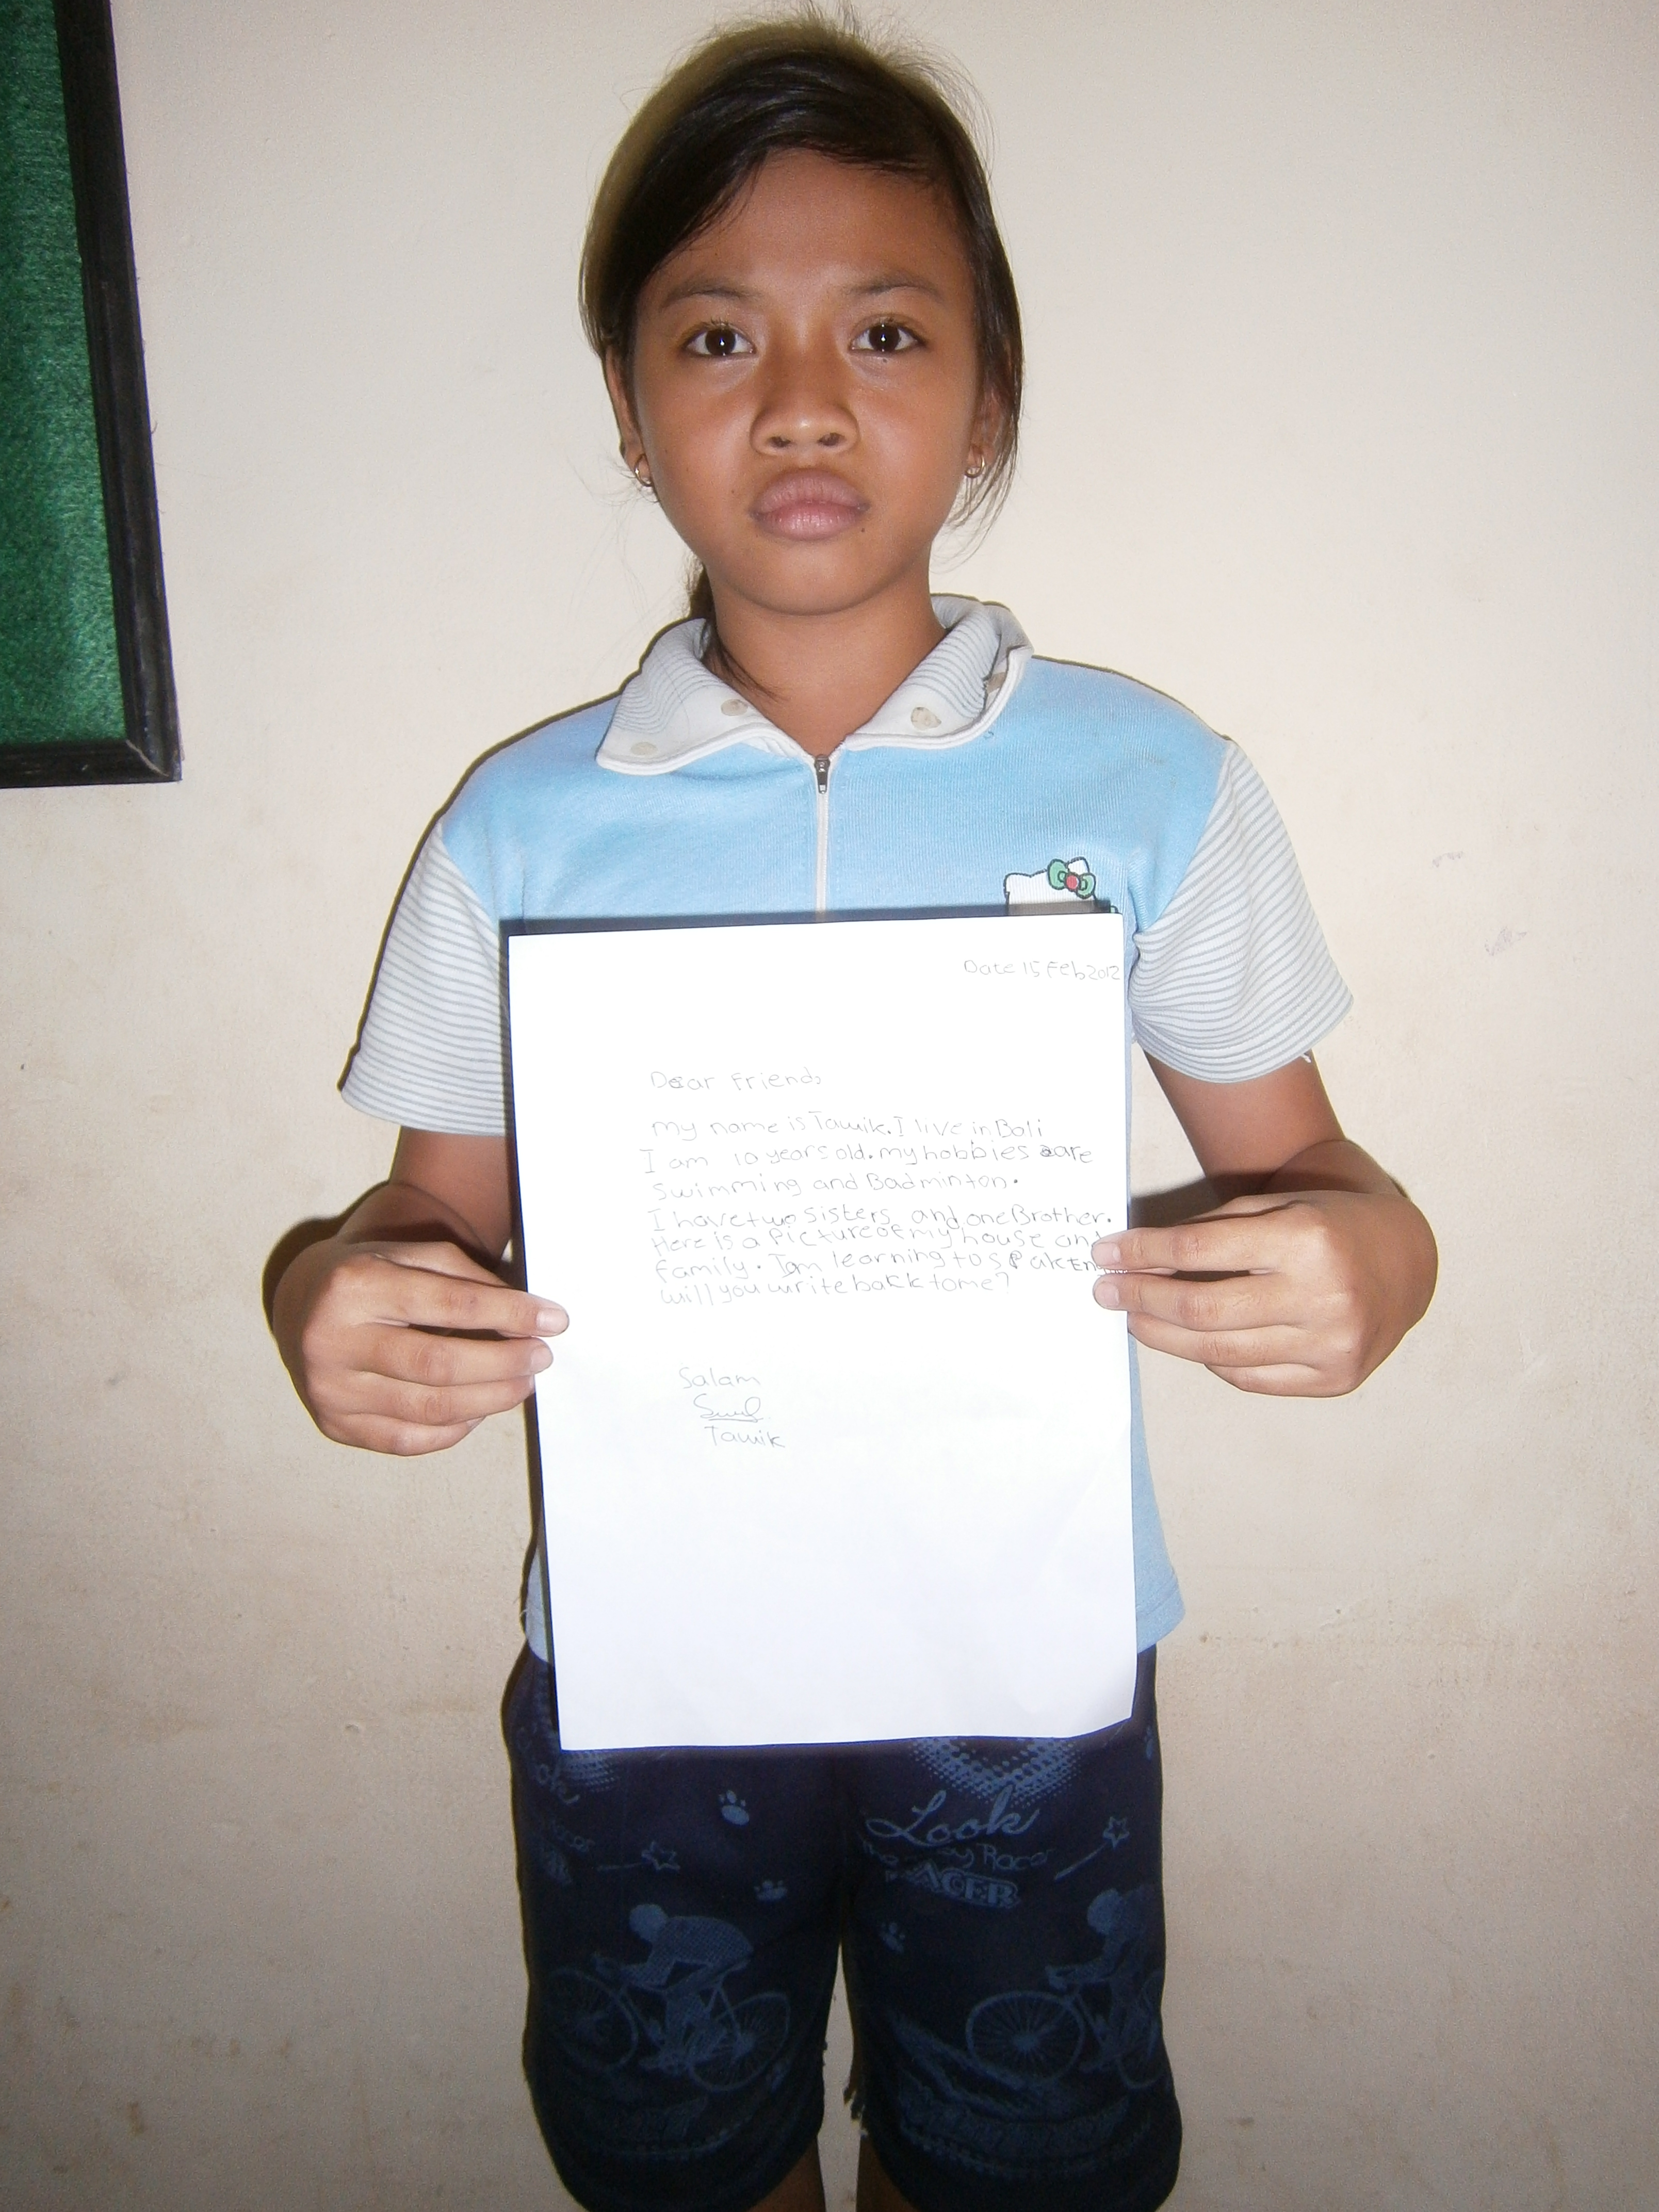 Date 15 Feb 2012
Dear friend,
my name is Tawik. I live in Bali
I am 10 years old. my hobbies are
Swimming and Badminton.
I have two Sisters and one Brother.
Here is a Picture of my house and
family. I am learning to speak En
will you write back to me?
Salam
Tawik
Look
Racer
Look
Racer
RACER